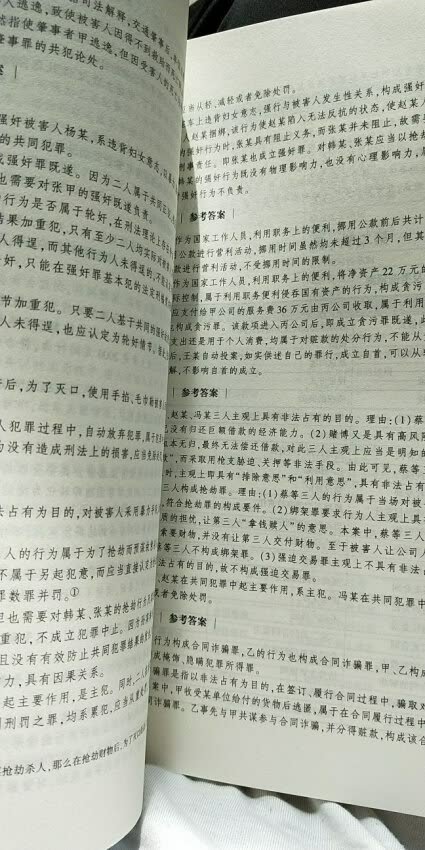 司法解释，交通肇事后，
人逃逸，致使被害人因得不到救助
然指使肇事者甲逃逸，但因受害人的
肇事罪的共犯论处。
答案
强奸被害人杨某，系违背妇女意志，以
的共同犯罪。
成强奸罪既遂。因为二人属于共同
也需要对张甲的强奸既遂负责。
行为是否属于轮奸，在刑法理论上
结果加重犯，只有至少二人均实际对被
人得逞，而其他行为人未得逞的，不
奸，只能在强奸罪基本犯的法定刑
节加重犯。只要二人基于共同的强
人未得逞，也应认定为轮奸情节。
后，为了灭口，使用手掐、毛巾勒
人犯罪过程中，自动放弃犯罪，属于
为没有造成刑法上的损害，应当免除
法占有为目的，对被害人采用暴力
人的行为属于为了抢劫而预谋
不属于另起犯意，而应当直接认定为
罪数罪并罚。①
但也需要对韩某、张某的抢劫行为
重犯，不成立犯罪中止。因为
且没有有效防止共同犯罪结果的
力，具有因果关系。
起主要作用，是主犯。同时，二人
刑罚之罪，均系累犯，应当从重
抢劫杀人，那么在抢劫财物后，为了灭口
当从轻、减轻或者免除处罚。
车上违背妇女意志，强行与被害人发生性关系，构成强奸
人赵某捆绑，该行为使赵某陷入无法反抗的状态，使赵某人
强奸行为时，张某具有阻止义务，而张某并未阻止，故需
刑事责任。即张某也成立强奸罪。对韩某、张某应当以抢劫
某的强奸行为既没有物理影响力，也没有心理影响力，
强奸行为不负责。
参考答案
作为国家工作人员，利用职务上的便利，挪用公款前后共计
公款进行营利活动，挪用时间虽然均未超过3个月，但其
款进行营利活动，不受挪用时间的限制。
作为国家工作人员，利用职务上的便利，将净资产22万元的
际控制，属于利用职务便利侵吞国有资产的行为，构成贪污
应支付给甲公司的服务费36万元由丙公司收取，属于利用
构成贪污罪。该款项进入丙公司后，即成立贪污罪既遂，此
支出还是用于个人消费，均属于对赃款的处分行为，不能从
后，王某自动投案，如实供述自己的罪行，成立自首，可以从
解，不影响自首的成立。
参考答案
、赵某、冯某三人主观上具有非法占有的目的。理由：(1)蔡
已没有归还巨额借款的经济能力。(2)赌博又是具有高风险
本无归，最终无法偿还借款，对此三人主观上应当是明知的
”，而采取用枪支胁迫、关押等非法手段。由此可见，蔡等三
时，主观上即具有“排除意思”和“利用意思”，具有非法占有
三人构成抢劫罪。理由：(1)蔡等三人的行为属于当场对被
，符合抢劫罪的构成要件。(2)绑架罪要求行为人主观上具
质的担忧，让第三人“拿钱赎人”的意思。本案中，蔡等三人
索要财物，并没有让第三人交付财物。至于被害人让公司人
等三人不构成绑架罪。(3)强迫交易罪主观上不具有非法占
法占有的目的，故不构成强迫交易罪。
赵某在共同犯罪中起主要作用，系主犯。冯某在共同犯罪中
者免除处罚。
参考答案
行为构成合同诈骗罪，乙的行为也构成合同诈骗罪，甲、乙构
成掩饰、隐瞒犯罪所得罪。
骗罪是指以非法占有为目的，在签订、履行合同过程中，骗取对
案中，甲收受某单位给付的货物后逃匿，属于在合同履行过程中
诈骗罪。乙事先与甲共谋参与合同诈骗，并分得赃款，构成该合